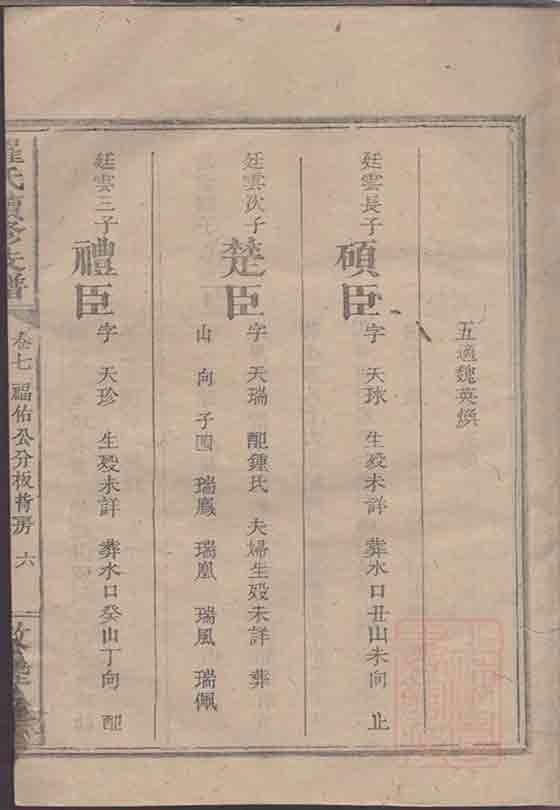 五適魏英煥
廷雲長子
碩臣
字 天球 生殁未詳 葬水口丑山未向 止
廷雲次子
楚臣
字 天瑞 配鍾氏 夫婦生殁未詳 葬
山 向 子四 瑞鳳 瑞凰 瑞風 瑞佩
廷雲三子
禮臣
字 天珍 生殁未詳 葬水口癸山丁向 配
羅氏續修支譜
卷七 福佑公分板背房 六